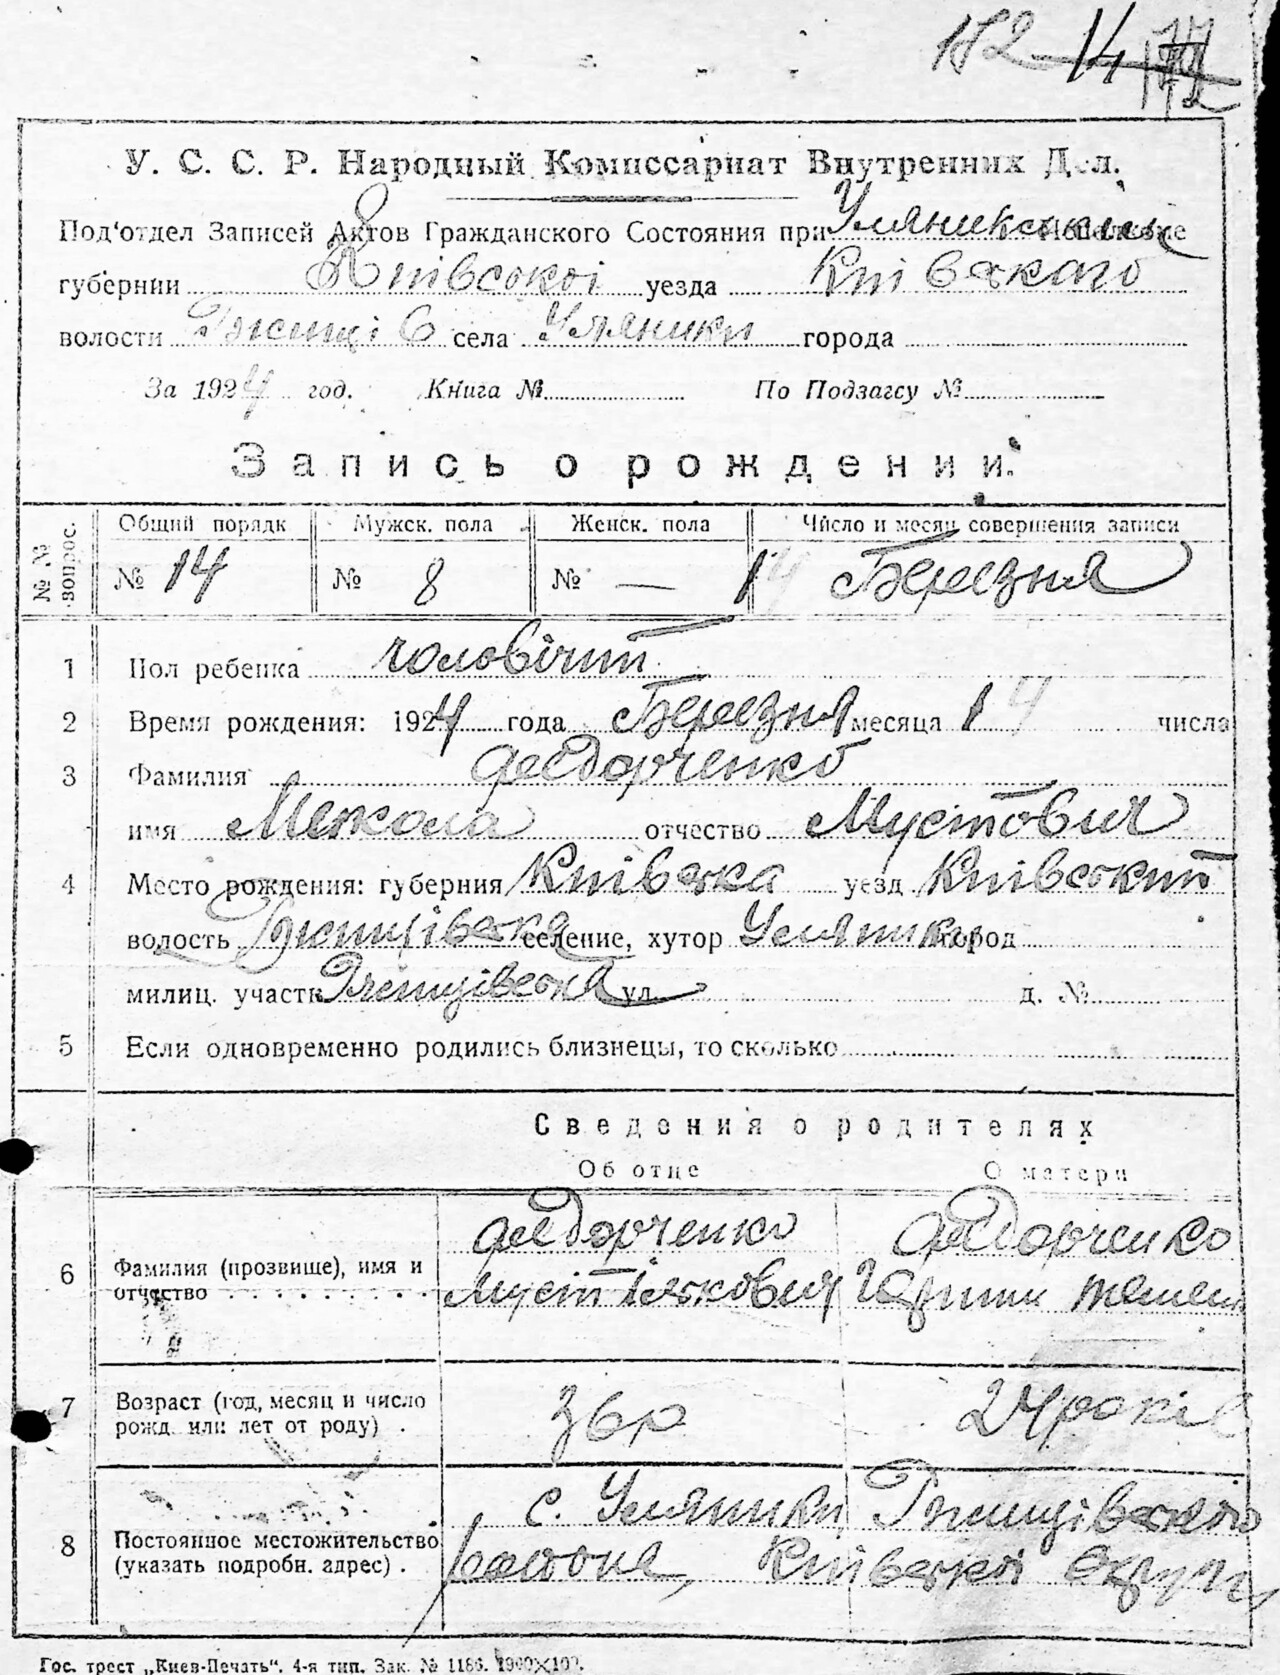 172 14
У. С. С. Р. Народный Комиссариат Внутренних Дел.
Под'отдел Записей Актов Гражданского Состояния при
губернии Київської уезда Київскаго
волости Ржищів села Уляники города
За 1924 год. Книга № По Подзагсу №
Запись о рождении.
№ № вопрос. Общий порядк Мужск. пола Женск. пола Число и месяц совершения записи
№ 14 № 8 № — 14 Березня
1 Пол ребенка чоловічий
2 Время рождения: 1924 года Березня месяца 14 числа
3 Фамилия Федорченко
имя Микола отчество Мустович
4 Место рождения: губерния Київська уезд Київський
волость Ржищівска селение, хутор Уляники город
милиц. участк Ржищівска ул. д. №
5 Если одновременно родились близнецы, то сколько
Сведения о родителях
Об отце О матери
Федорченко Федорченко
6 Фамилия (прозвище), имя и
отчество Муст Яккович
7 Возраст (год, месяц и число
рожд. или лет от роду) . 36 р 24 років
с. Уляники, Ржищівского
8 Постоянное местожительство
(указать подробн. адрес) . району, Київскої Округи
Гос. трест „Киев-Печать“. 4-я тип. Зак. № 1186. 1900×100.